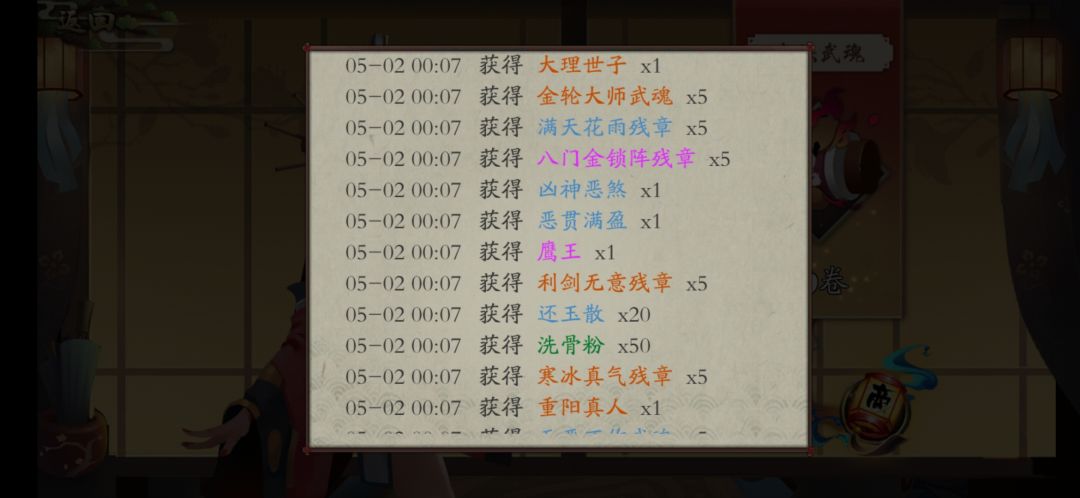 返回
武魂
05-02 00:07 获得 大理世子 x1
05-02 00:07 获得 金轮大师武魂 x5
05-02 00:07 获得 满天花雨残章 x5
05-02 00:07 获得 八门金锁阵残章 x5
05-02 00:07 获得 凶神恶煞 x1
05-02 00:07 获得 恶贯满盈 x1
05-02 00:07 获得 鹰王 x1
05-02 00:07 获得 利剑无意残章 x5
05-02 00:07 获得 还玉散 x20
05-02 00:07 获得 洗骨粉 x50
05-02 00:07 获得 寒冰真气残章 x5
05-02 00:07 获得 重阳真人 x1
卷
帝